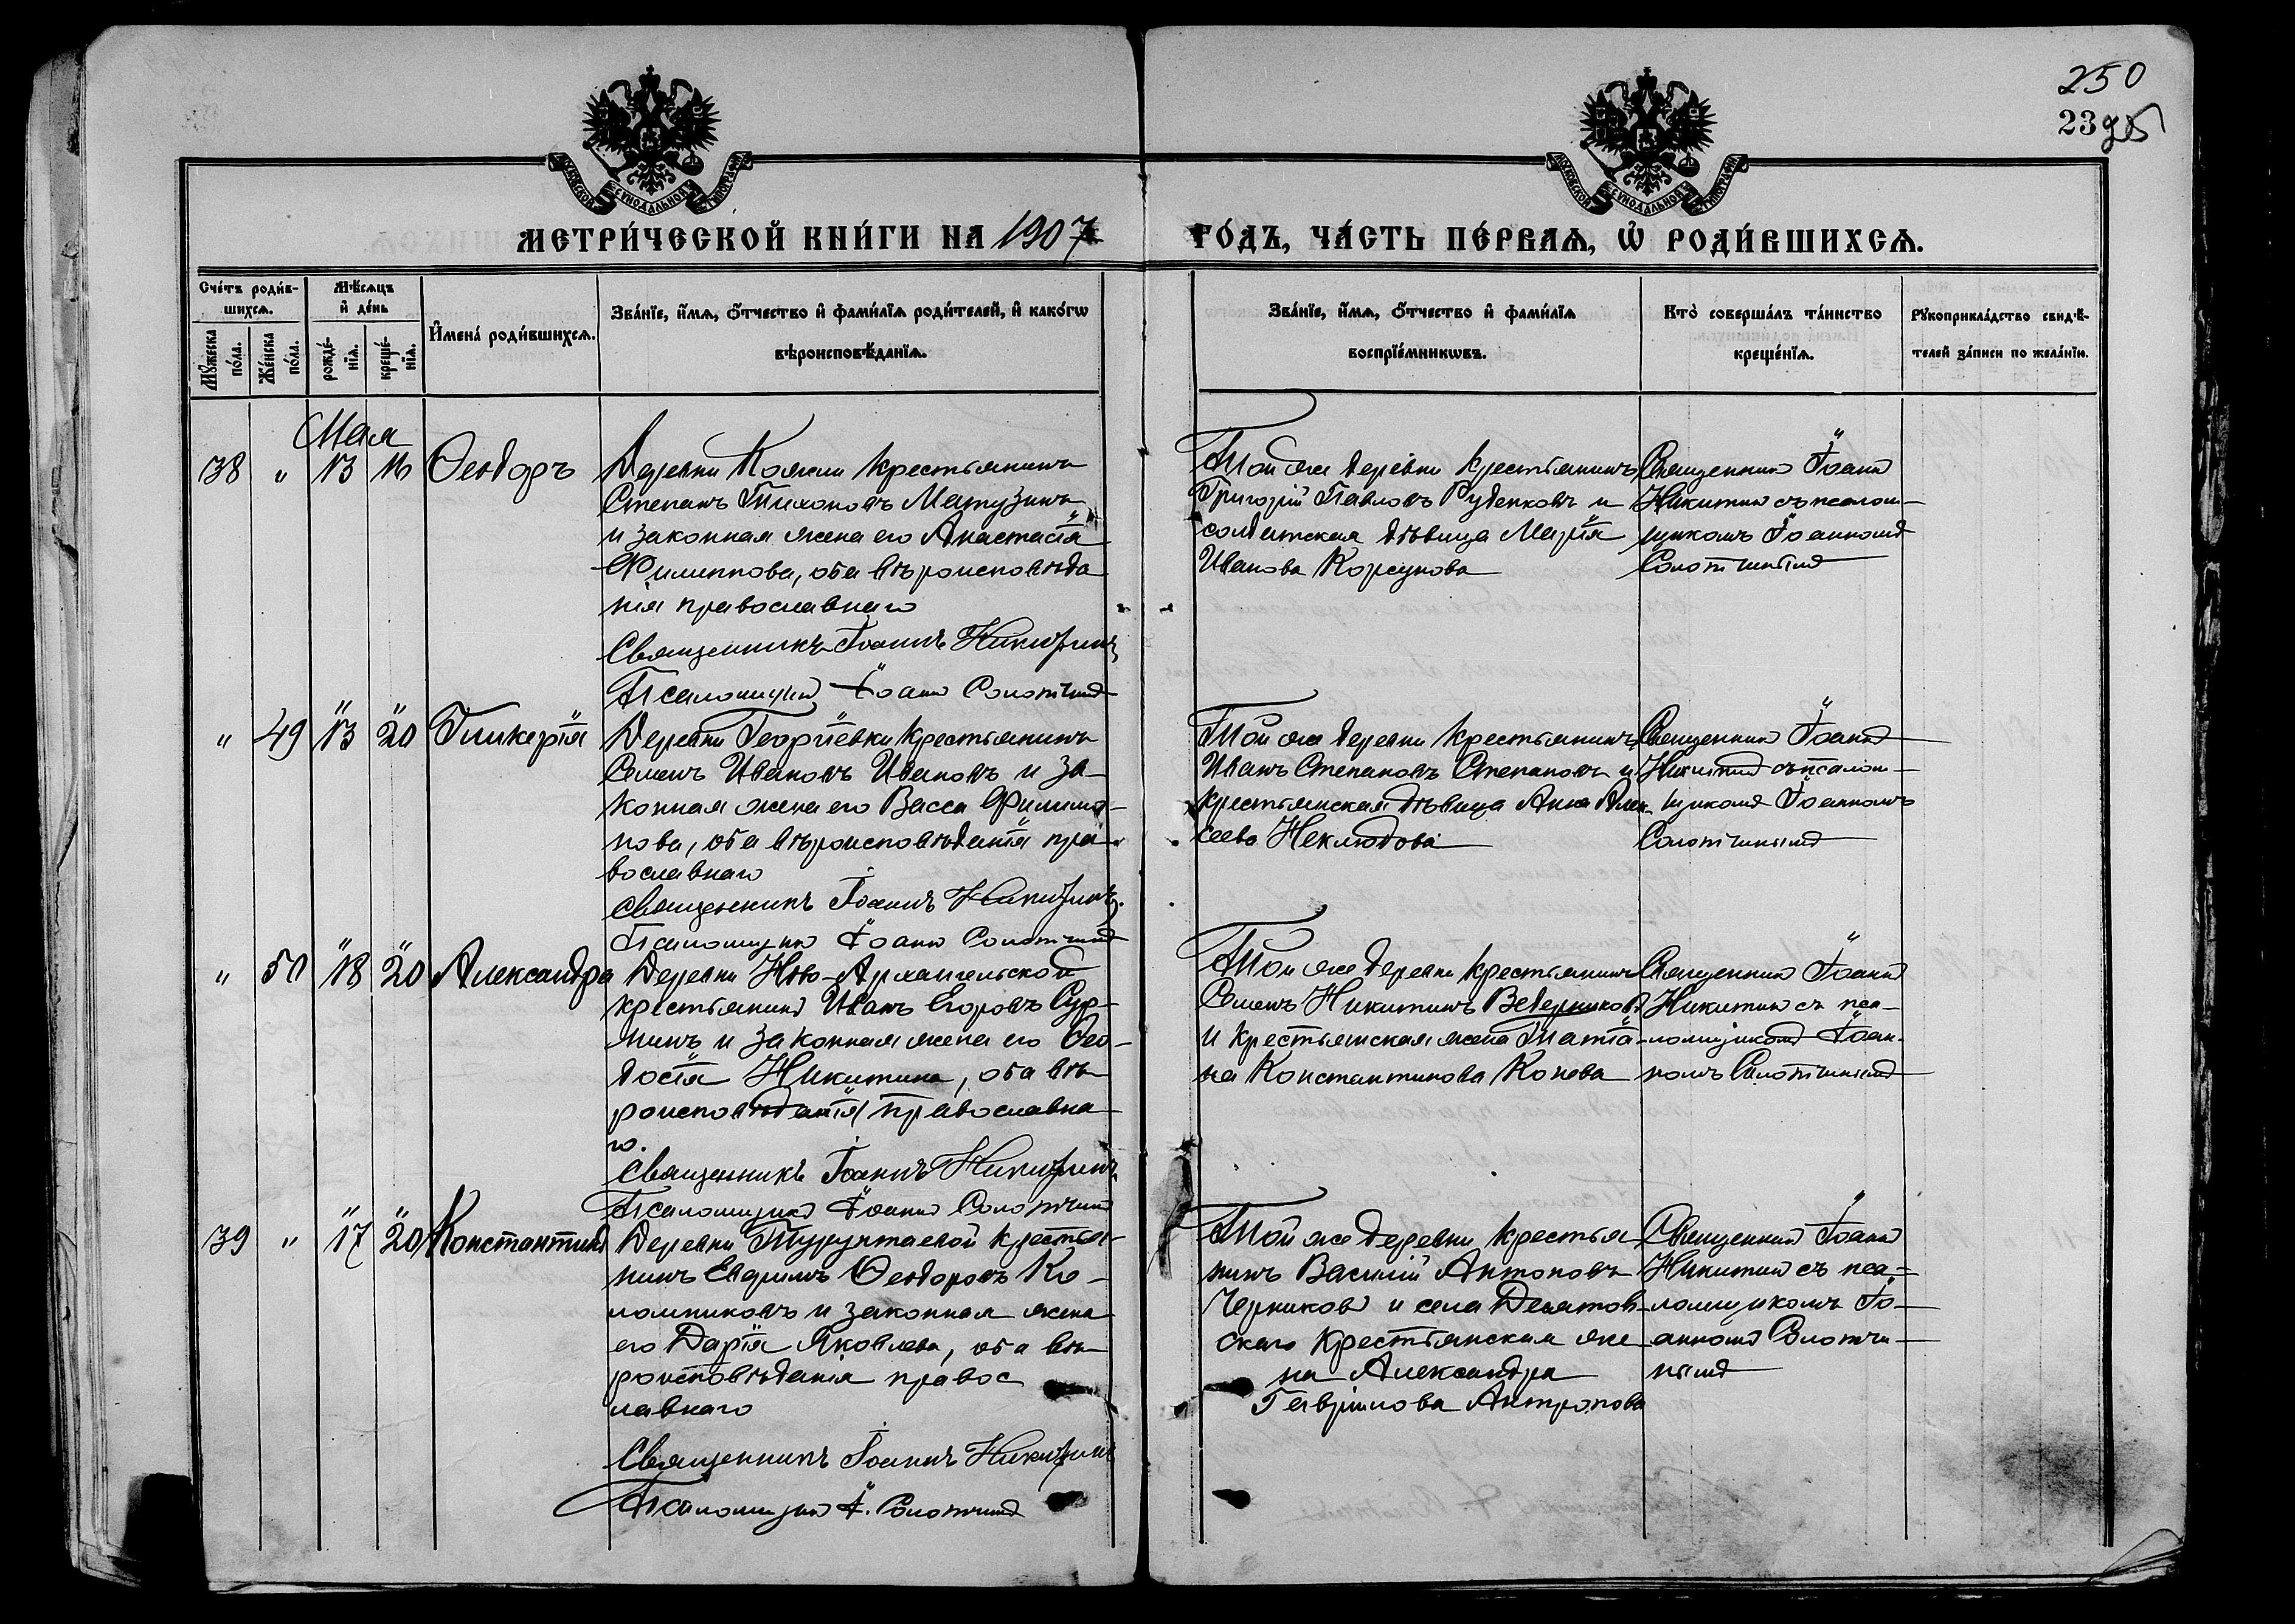 250
2395
МОСКОВСКОЙ СѴНОДАЛЬНОЙ ТИПОГРАФІИ
МОСКОВСКОЙ СѴНОДАЛЬНОЙ ТИПОГРАФІИ
МЕТРИ́ЧЕСКОЙ КНИ́ГИ НА 1907
ГО́ДЪ, ЧА́СТЬ ПЕ́РВАѦ, Ѽ РОДИ́ВШИХСѦ.
Сче́тъ роди́в-
шихсѧ.
Мꙋ́жеска по́ла.
Же́нска по́ла.
Мѣ́сѧцъ
и҆ де́нь
рожде́-
нїѧ.
креще́-
нїѧ.
И҆мена̀ роди́вшихсѧ.
Зва́нїе, и҆́мѧ, ѻ҆́тчество и҆ фами́лїѧ роди́телей, и҆ како́гѡ
вѣроисповѣ́данїѧ.
Зва́нїе, и҆́мѧ, ѻ҆́тчество и҆ фами́лїѧ
воспрїе́мникѡвъ.
Кто̀ соверша́лъ та́инство
креще́нїѧ.
Рꙋкоприкла́дство свидѣ́-
телей за́писи по жела́нїю.
Мая
38 " 13 16 Ѳеодоръ
Деревни крестьянинъ
Степанъ Тихоновъ Матузинъ
и законная жена его Анастасія
Филиппова, оба вѣроисповѣда
нія православнаго
Священникъ Іоаннъ Никитинъ
Псаломщикъ Іоаннъ Солотчинъ
Той же деревни крестьянинъ
Григорій Павловъ Руденковъ и
солдатская дѣвица Марія
Иванова Корсунова
Священникъ Іоаннъ
Никитинъ съ псалом-
щикомъ Іоанномъ
Солотчинымъ
" 49 13 20 Гликерія
Деревни Георгіевки крестьянинъ
Семенъ Ивановъ Ивановъ и за-
конная жена его Васса Филимо-
нова, оба вѣроисповѣданія пра-
вославнаго
Священникъ Іоаннъ Никитинъ
Псаломщикъ Іоаннъ Солотчинъ
Той же деревни крестьянинъ
Иванъ Степановъ Степановъ и
крестьянская дѣвица Анна Алек-
сеева Неклюдова
Священникъ Іоаннъ
Никитинъ съ псалом-
щикомъ Іоанномъ
Солотчинымъ
" 50 18 20 Александра
Деревни Ново-Архангельской
крестьянинъ Иванъ Егоровъ Сур-
нинъ и законная жена его Ѳео-
досія Никитина, оба вѣ-
роисповѣданія православна-
го.
Священникъ Іоаннъ Никитинъ
Псаломщикъ Іоаннъ Солотчинъ
Той же деревни крестьянинъ
Семенъ Никитинъ Ведерниковъ
и крестьянская жена Татія-
на Константинова Конева
Священникъ Іоаннъ
Никитинъ съ пса-
ломщикомъ Іоан-
номъ Солотчинымъ
39 " 17 20 Константинъ
Деревни Турунтаевой крестья-
нинъ Ѳеодоровъ Ко-
ломниковъ и законная жена
его Дарія Яковлева, оба вѣ-
роисповѣданія правос
лавнаго
Священникъ Іоаннъ Никитинъ
Псаломщикъ І. Солотчинъ
Той же деревни крестья-
нинъ Василій Антоновъ
Черниковъ и села
скаго крестьянская же
на Александра
Гавріилова Антропова
Священникъ Іоаннъ
Никитинъ съ пса-
ломщикомъ Іо-
анномъ Солотчи-
нымъ